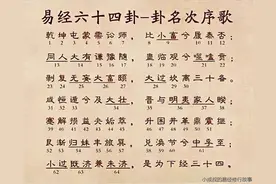 易经六十四卦-卦名次序歌
乾坤屯蒙需讼师, 比小畜兮履泰否;
1 2 3 4 5 6 7 8 9 10 11 12
同人大有谦豫随, 蛊临观兮噬嗑贲;
13 14 15 16 17 18 19 20 21 22
剥复无妄大畜颐, 大过坎离三十备。
23 24 25 26 27 28 29 30
咸恒遁兮及大壮, 晋与明夷家人睽;
31 32 33 34 35 36 37 38
蹇解损益夬姤萃, 升困井革鼎震继;
39 40 41 42 43 44 45 46 47 48 49 50 51
艮渐归妹丰旅巽, 兑涣节兮中孚至;
52 53 54 55 56 57 58 59 60 61
小过既济兼未济, 是为下经三十四。
62 63 64